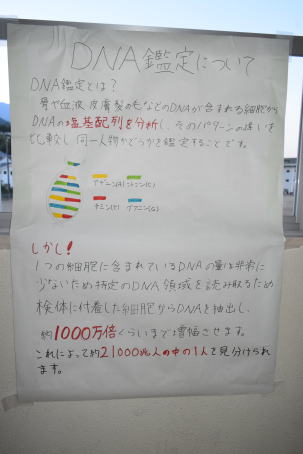 DNA鑑定について
DNA鑑定とは？
骨や血液、皮膚、髪の毛などのDNAが含まれる細胞から
DNAの塩基配列を分析し、そのパターンの違いを
比較し同一人物かどうかを鑑定することです。
アデニン(A) シトシン(C)
チミン(T) グアニン(G)
しかし！
1つの細胞に含まれているDNAの量は非常に
少ないため特定のDNA領域を読み取るため
検体に付着した細胞からDNAを抽出し、
約1000万倍くらいまで増幅させます。
これによって約21000兆人の中の1人を見分けられ
ます。